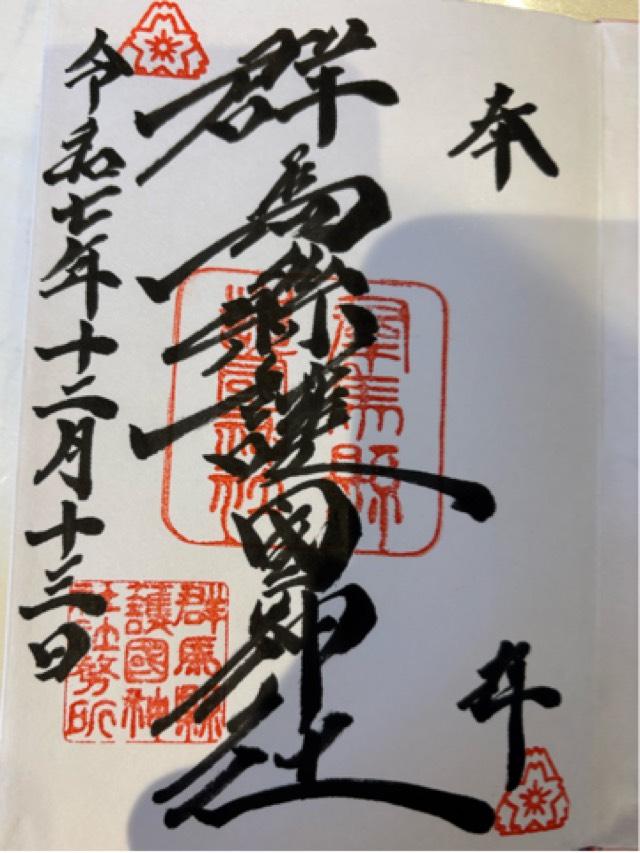 奉拝
群馬縣護國神社
令和七年十二月十三日
群馬縣
護國神社
群馬縣
護國神
社社務所